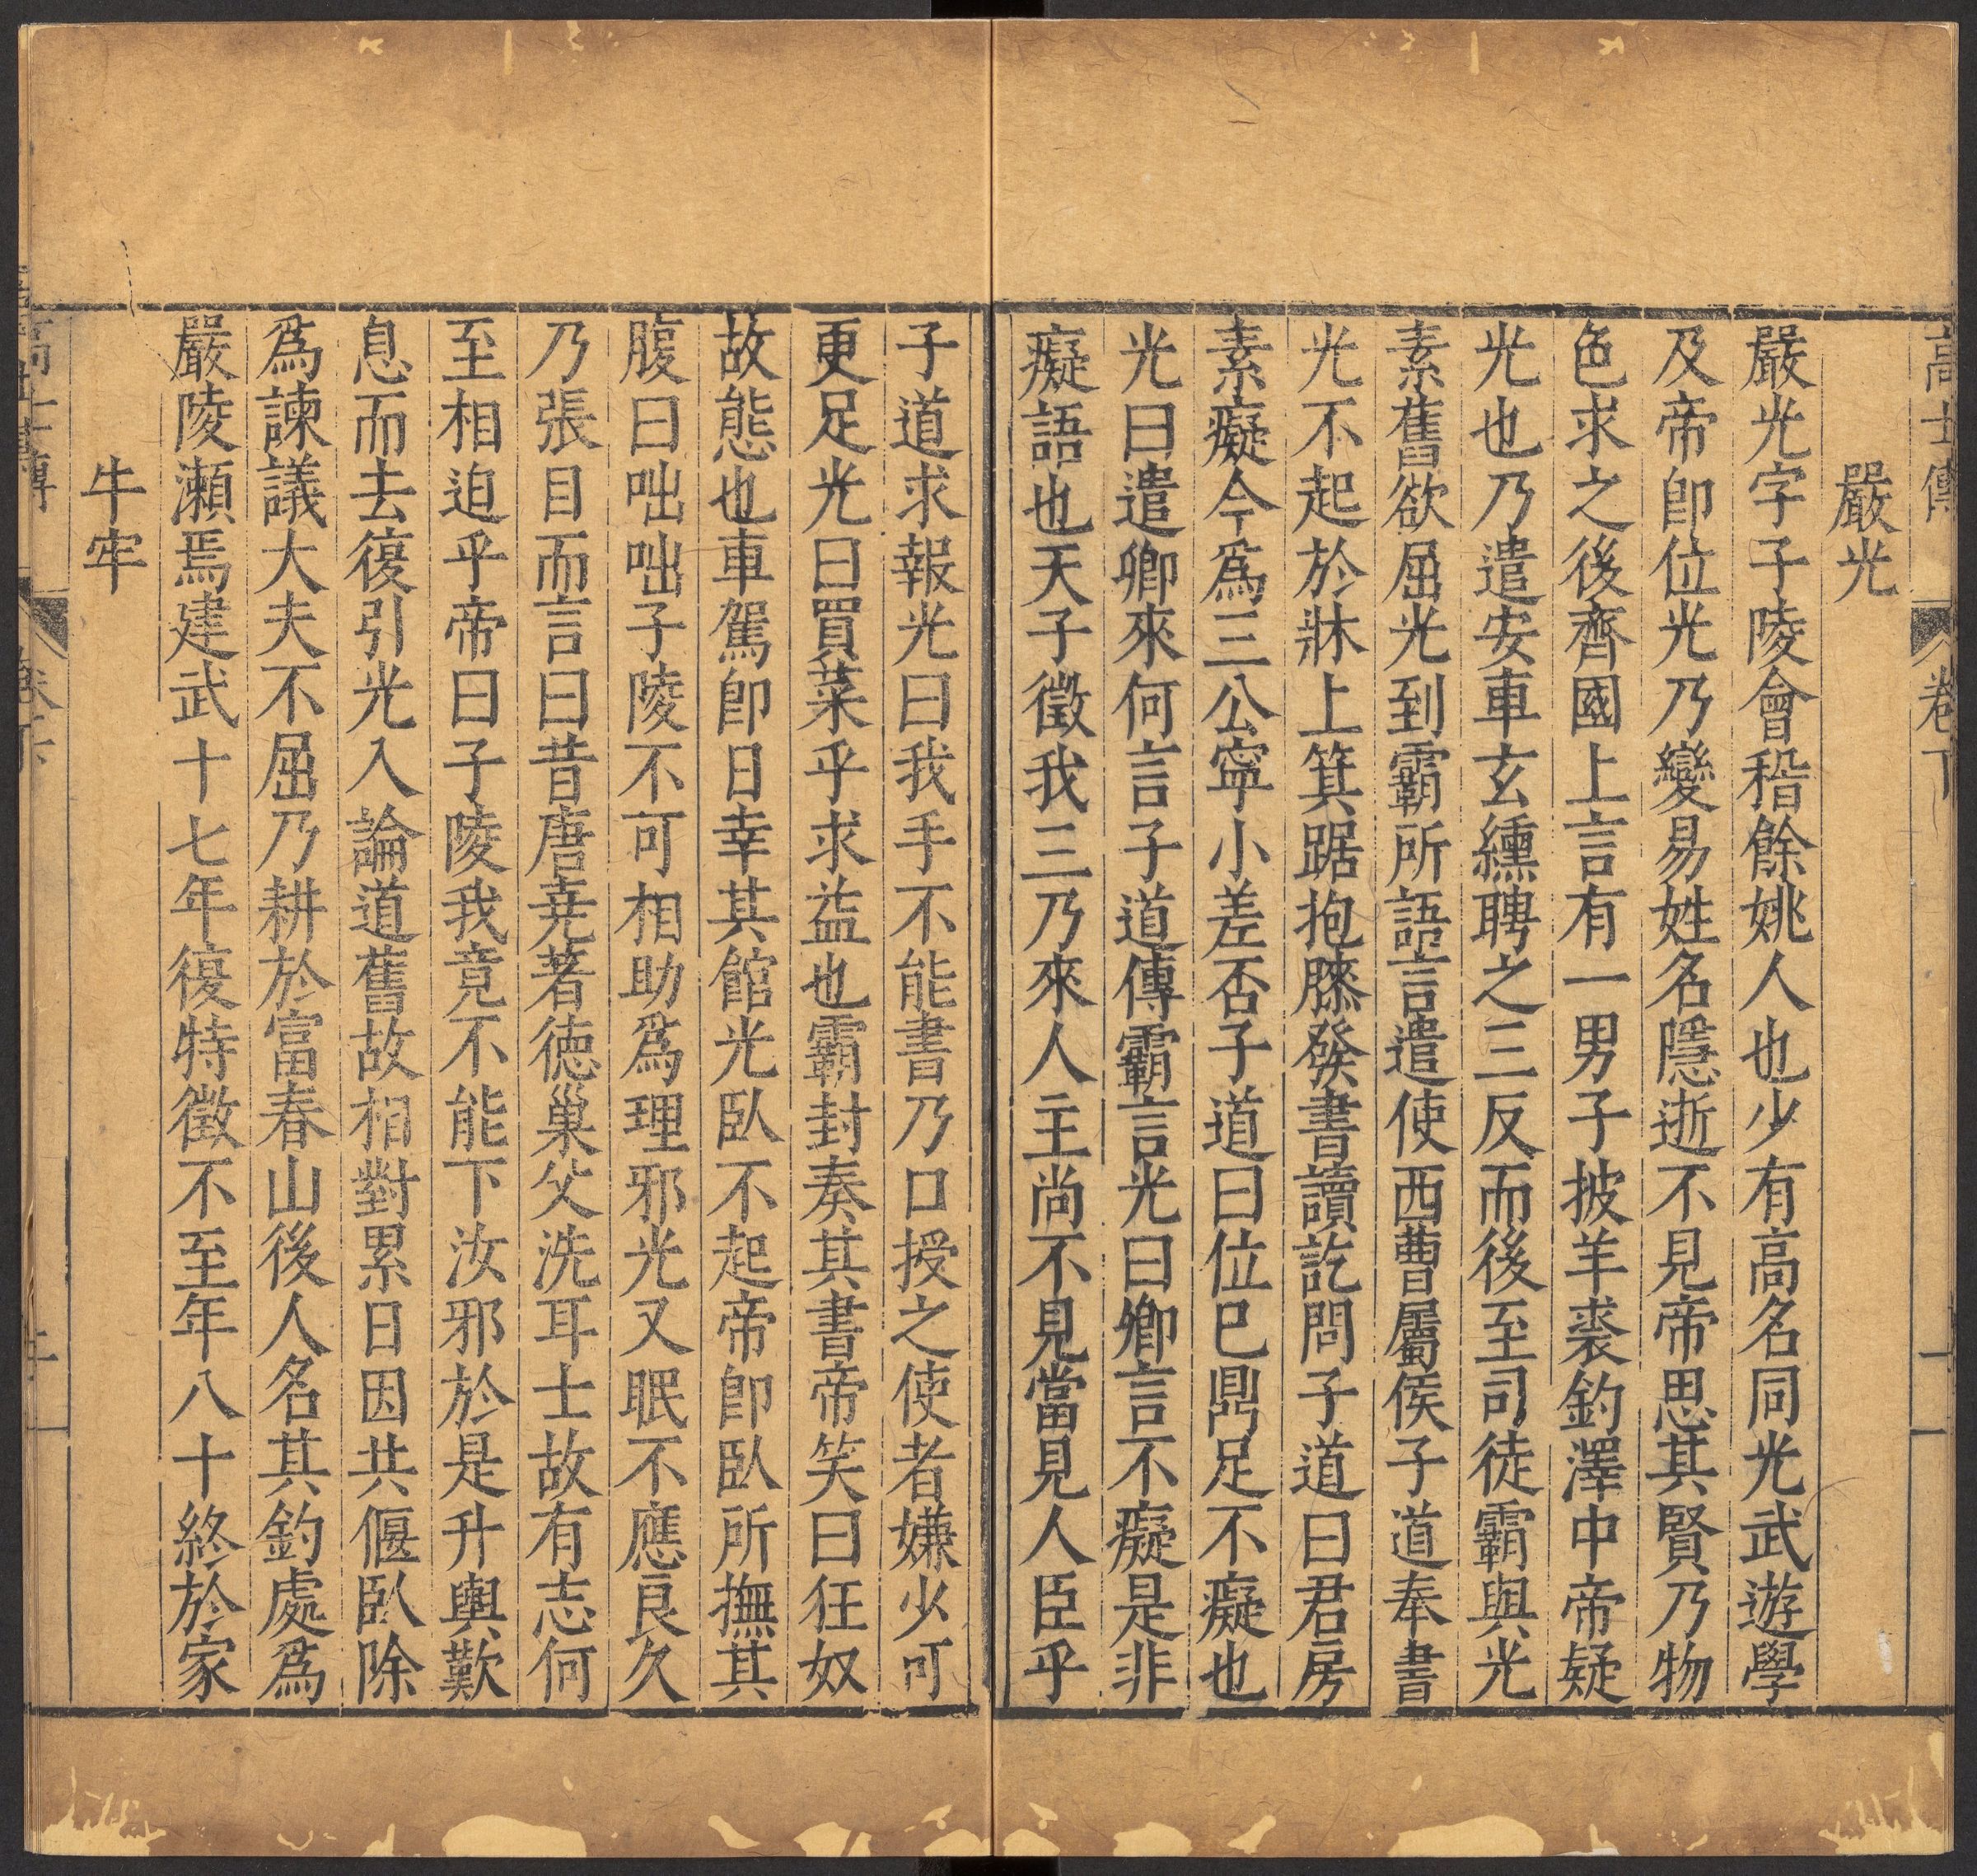 高士傳 卷下 十一
嚴光
嚴光字子陵會稽餘姚人也少有高名同光武遊學
及帝卽位光乃變易姓名隱逝不見帝思其賢乃物
色求之後齊國上言有一男子披羊裘釣澤中帝疑
光也乃遣安車玄纁聘之三反而後至司徒霸與光
素舊欲屈光到霸所語言遣使西曹屬侯子道奉書
光不起於牀上箕踞抱膝發書讀訖問子道曰君房
素癡今爲三公寧小差否子道曰位已鼎足不癡也
光曰遣卿來何言子道傳霸言光曰卿言不癡是非
癡語也天子徵我三乃來人主尚不見當見人臣乎
子道求報光曰我手不能書乃口授之使者嫌少可
更足光曰買菜乎求益也霸封奏其書帝笑曰狂奴
故態也車駕卽日幸其館光臥不起帝卽臥所撫其
腹曰咄咄子陵不可相助爲理邪光又眠不應良久
乃張目而言曰昔唐堯著德巢父洗耳士故有志何
至相迫乎帝曰子陵我竟不能下汝邪於是升輿歎
息而去復引光入論道舊故相對累日因共偃臥除
爲諫議大夫不屈乃耕於富春山後人名其釣處爲
嚴陵瀨焉建武十七年復特徵不至年八十終於家
牛牢